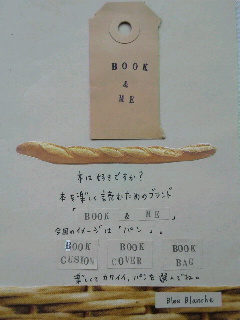 BOOK
&
ME
本は好きですか?
本を楽しく読むためのブランド
「BOOK & ME」
今回のイメージは「パン」。
BOOK CUSION
BOOK COVER
BOOK BAG
楽しくてカワイイ、パンを選んでね。
Bleu Blanche